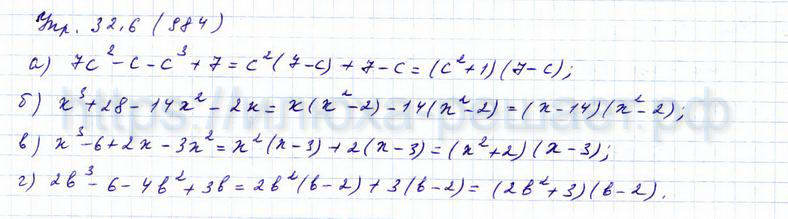 Упр. 32.6 (984)
а) 7c² - c - c³ + 7 = c²(7-c) + 7-c = (c²+1)(7-c);
б) x³+28-14x²-2x = x(x²-2)-14(x²-2) = (x-14)(x²-2);
в) x³-6+2x-3x² = x²(x-3)+2(x-3) = (x²+2)(x-3);
г) 2b³-6-4b²+3b = 2b²(b-2)+3(b-2) = (2b²+3)(b-2).